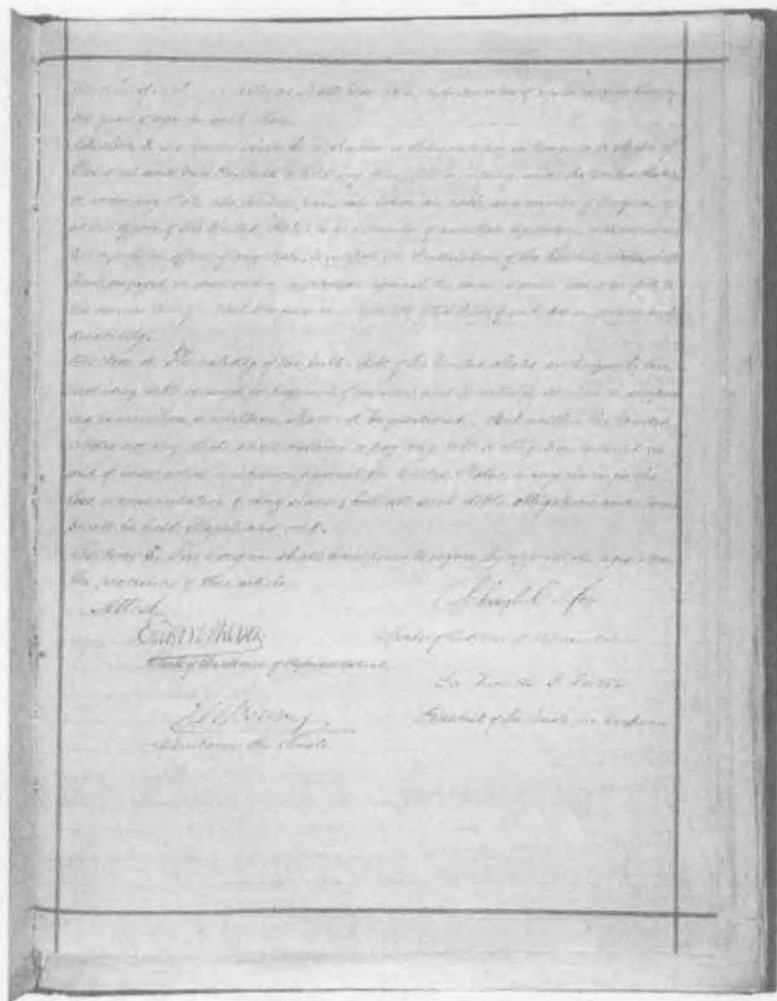 years of age in such State.
Section 3. No person shall be a Senator or Representative in Congress, or elector of
President and Vice President, or hold any office, civil or military, under the United States,
or under any State, who having previously taken an oath as a member of Congress, or
as an officer of the United States, or as a member of any State legislature, or as an
executive or judicial officer of any State, to support the Constitution of the United States, shall
have engaged in insurrection or rebellion against the same, or given aid or comfort to
the enemies thereof. But Congress may by a vote of two thirds of each House, remove such
disability.
Section 4. The validity of the public debt of the United States, authorized by law,
including debts incurred for payment of pensions and bounties for services in suppressing
insurrection or rebellion, shall not be questioned. But neither the United
States nor any State shall assume or pay any debt or obligation incurred in
aid of insurrection or rebellion against the United States, or any claim for the
loss or emancipation of any slave; but all such debts, obligations and claims
shall be held illegal and void.
Section 5. The Congress shall have power to enforce, by appropriate legislation,
the provisions of this article.
Attest
Schuyler Colfax
Speaker of the House of Representatives.
Clerk of the House of Representatives.
La Fayette S. Foster
President of the Senate pro tempore.
J. W. Forney,
Secretary of the Senate.